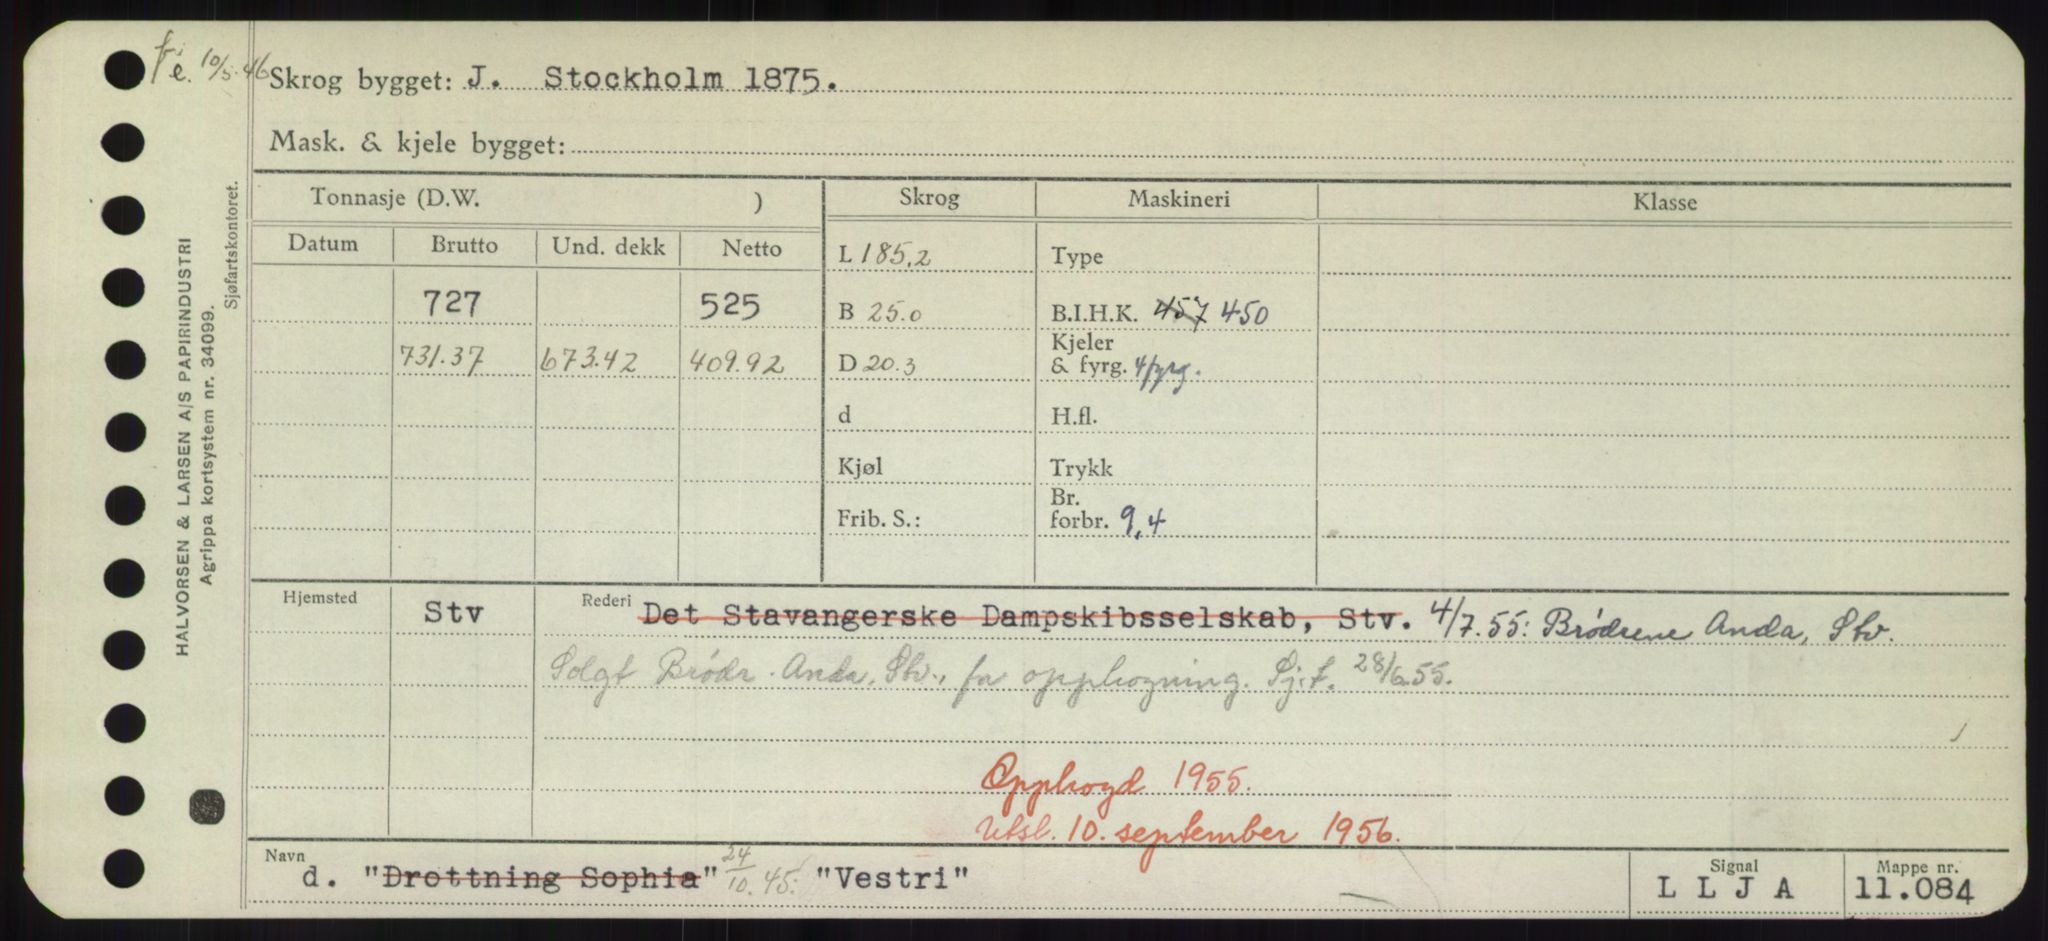 10/5.46
Skrog bygget: J. Stockholm 1875.
Mask. & kjele bygget:
Tonnasje (D.W. )
Skrog
Maskineri
Klasse
Datum Brutto Und. dekk Netto
L 185,2
Type
727 525
B 25.0
B.I.H.K. 457 450
731.37 673.42 409.92
D 20.3
Kjeler
& fyrg. 4 fyrg.
d
H.fl.
Kjøl
Trykk
Frib. S.:
Br.
forbr. 9,4
Hjemsted Stv
Rederi Det Stavangerske Dampskibsselskab, Stv. 4/7.55: Brödrene Anda, Stv.
Solgt Brödr. Anda, Stv., for opphogning. Sj.t. 28/6 55.
Opphogd 1955.
Utsl. 10. september 1956.
Navn
d. "Drottning Sophia" 24/10.45: "Vestri"
Signal
L L J A
Mappe nr.
11.084
HALVORSEN & LARSEN A/S PAPIRINDUSTRI
Agrippa kortsystem nr. 34099.
Sjøfartskontoret.